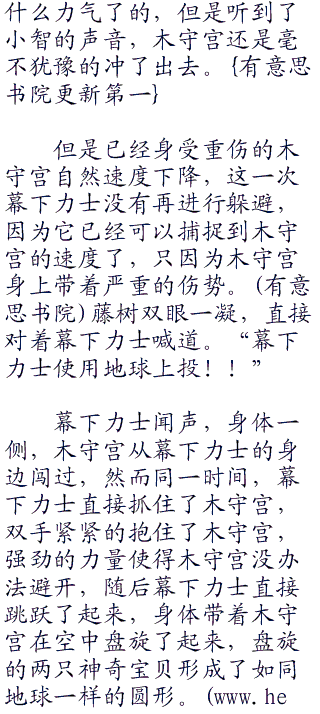 什么力气了的，但是听到了
小智的声音，木守宫还是毫
不犹豫的冲了出去。{有意思
书院更新第一}
但是已经身受重伤的木
守宫自然速度下降，这一次
幕下力士没有再进行躲避，
因为它已经可以捕捉到木守
宫的速度了，只因为木守宫
身上带着严重的伤势。(有意
思书院)藤树双眼一凝，直接
对着幕下力士喊道。“幕下
力士使用地球上投！！”
幕下力士闻声，身体一
侧，木守宫从幕下力士的身
边闯过，然而同一时间，幕
下力士直接抓住了木守宫，
双手紧紧的抱住了木守宫，
强劲的力量使得木守宫没办
法避开，随后幕下力士直接
跳跃了起来，身体带着木守
宫在空中盘旋了起来，盘旋
的两只神奇宝贝形成了如同
地球一样的圆形。(www.he